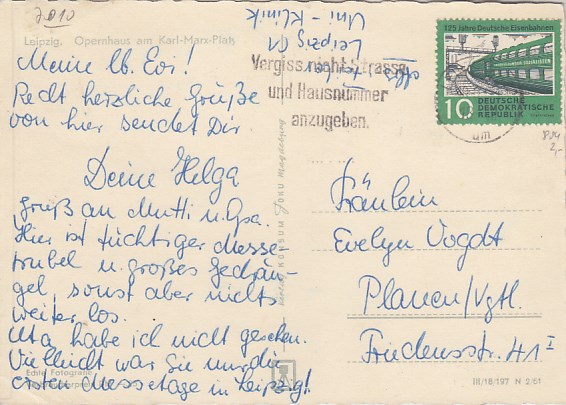 7010
Leipzig. Opernhaus am Karl-Marx-Platz
Meine lb. Evi!
Recht herzliche Grüße
von hier sendet Dir
Deine Helga
Gruß an Mutti u. Opa.
Hier ist tüchtiger Messe-
trubel u. großes Gedrän-
gel, sonst aber nichts
weiter los.
Uta habe ich nicht gesehen.
Vielleicht war Sie nur die
ersten Messetage in Leipzig!
Echte Fotografie
Uni-Klinik
Leipzig C1
Vergiss nicht Strasse
und Hausnummer
anzugeben.
125 Jahre Deutsche Eisenbahnen
10 DEUTSCHE
DEMOKRATISCHE
REPUBLIK
2,-
KONSUM FOTO Magdeburg
Fräulein
Evelyn Vogdt
Plauen/Vgtl.
Friedensstr. 41 I
III/18/197 N 2/61